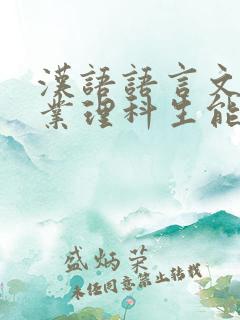 漢語語言文
業理科生能
盛炳荣
未经同意禁止转载